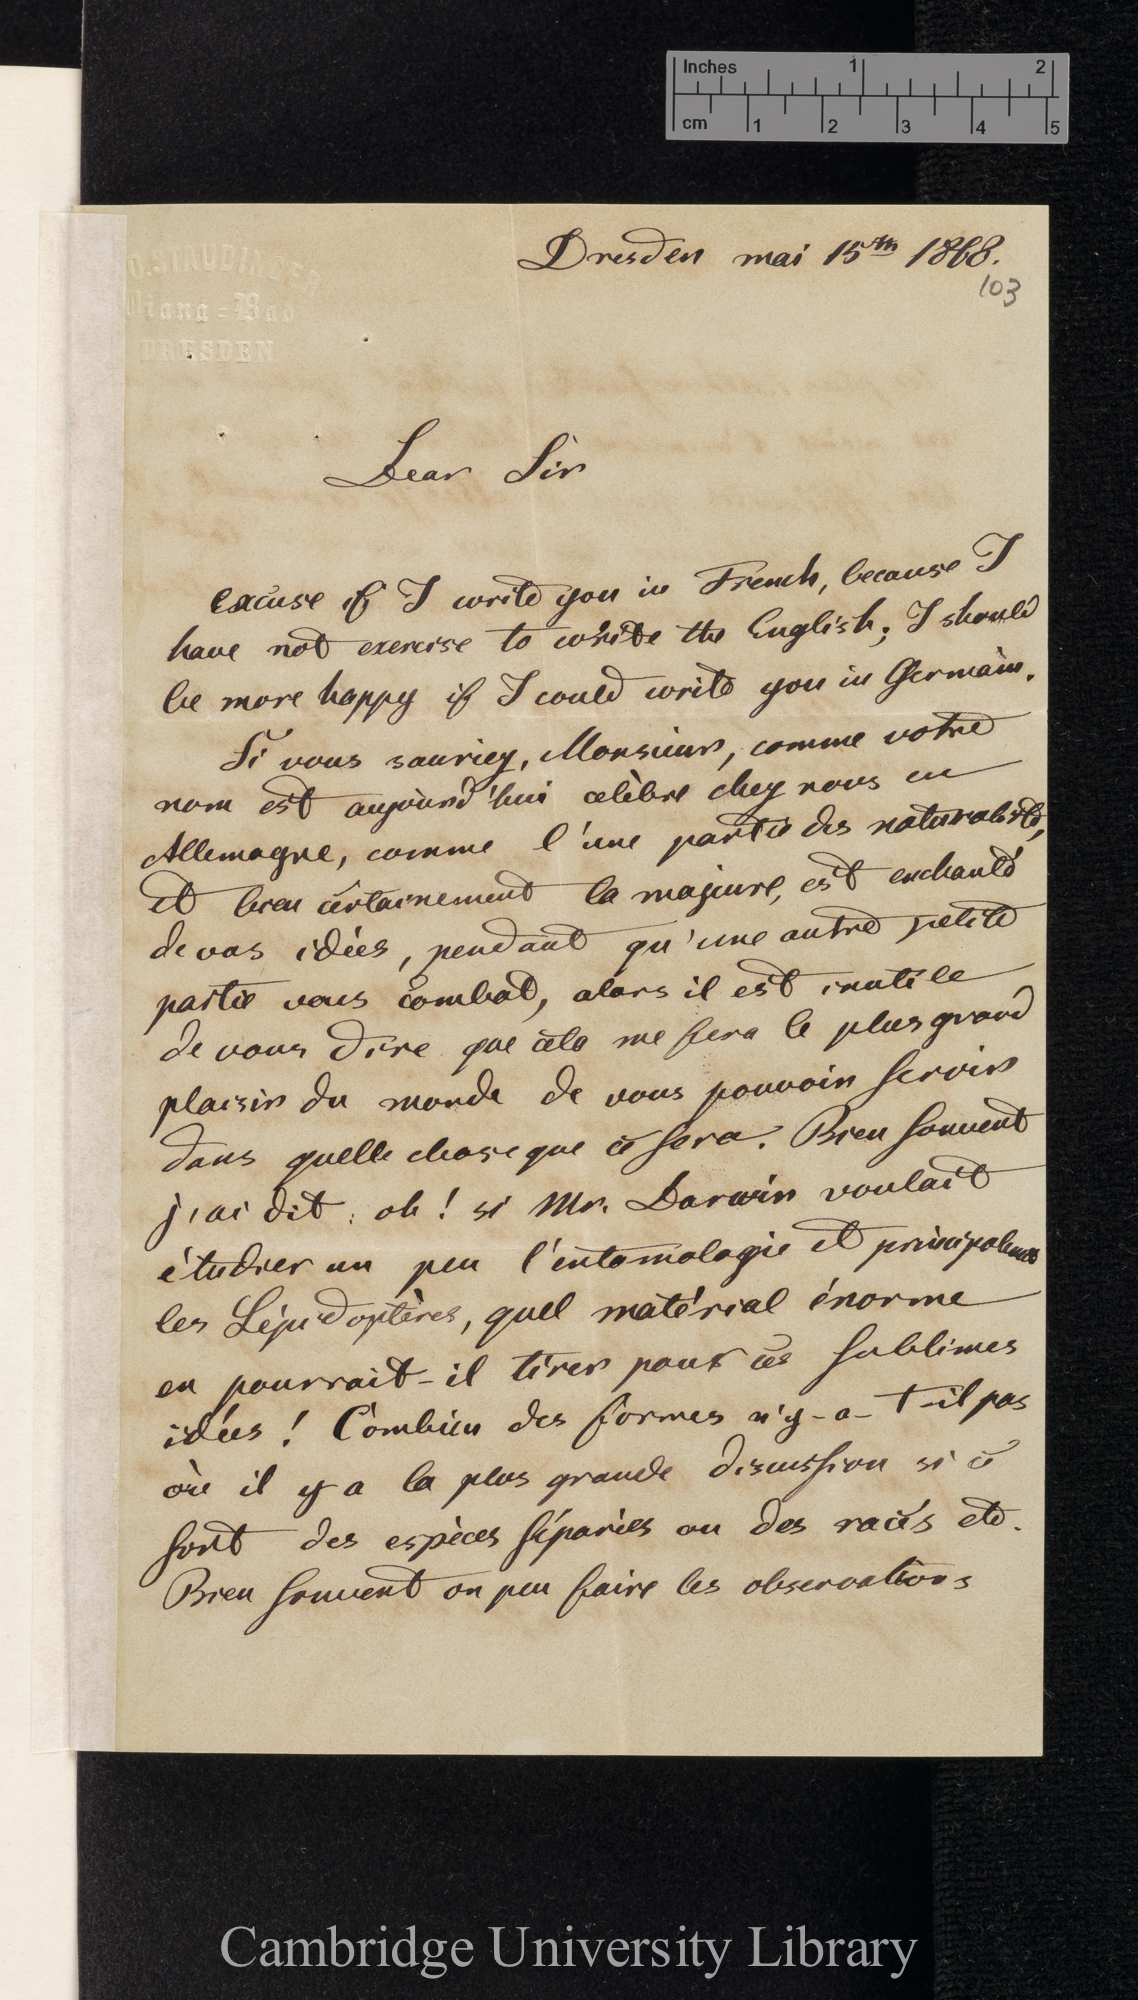 Inches 1 2
cm 1 2 3 4 5
O. STAUDINGER
Diana-Bad
DRESDEN
Dresden mai 15th 1868.
103
Dear Sir
excuse if I write you in French, because I
have not exercise to white the English; I should
be more happy if I could write you in Germain.
Si vous sauriez, Monsieur, comme votre
nom est aujourd'hui célèbre chez nous en
Allemagne, comme l'une partie des naturalistes,
et bien certainement la majeure, est enchanté
de vos idées, pendant qu'une autre petite
partie vous combat, alors il est inutile
de vous dire que cela me fera le plus grand
plaisir du monde de vous pouvoir servir
dans quelle chose que ce sera. Bien souvent
j'ai dit: oh! si Mr. Darwin voulait
étudier un peu l'entomologie et principalement
les Lépidoptères, quel matérial énorme
en pourrait-il tirer pour ces sublimes
idées! Combien des formes n'y-a-t-il pas
où il y a la plus grande discussion si ce
sont des espèces séparées ou des racés etc.
Bien souvent on peu faire les observations
Cambridge University Library